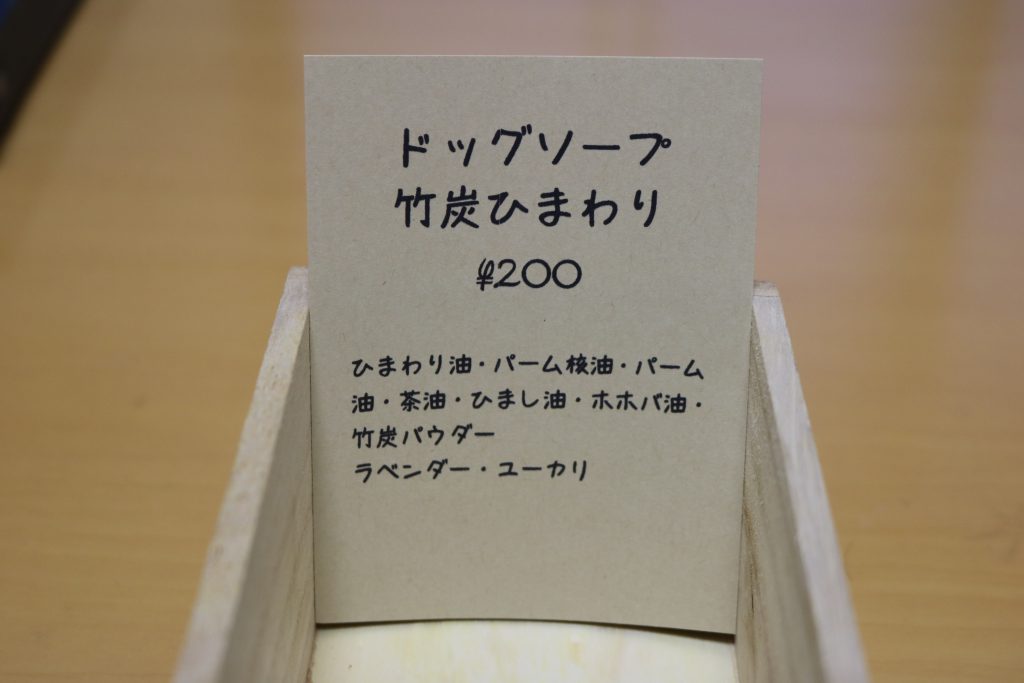 ドッグソープ
竹炭ひまわり
¥200
ひまわり油・パーム核油・パーム
油・茶油・ひまし油・ホホバ油・
竹炭パウダー
ラベンダー・ユーカリ